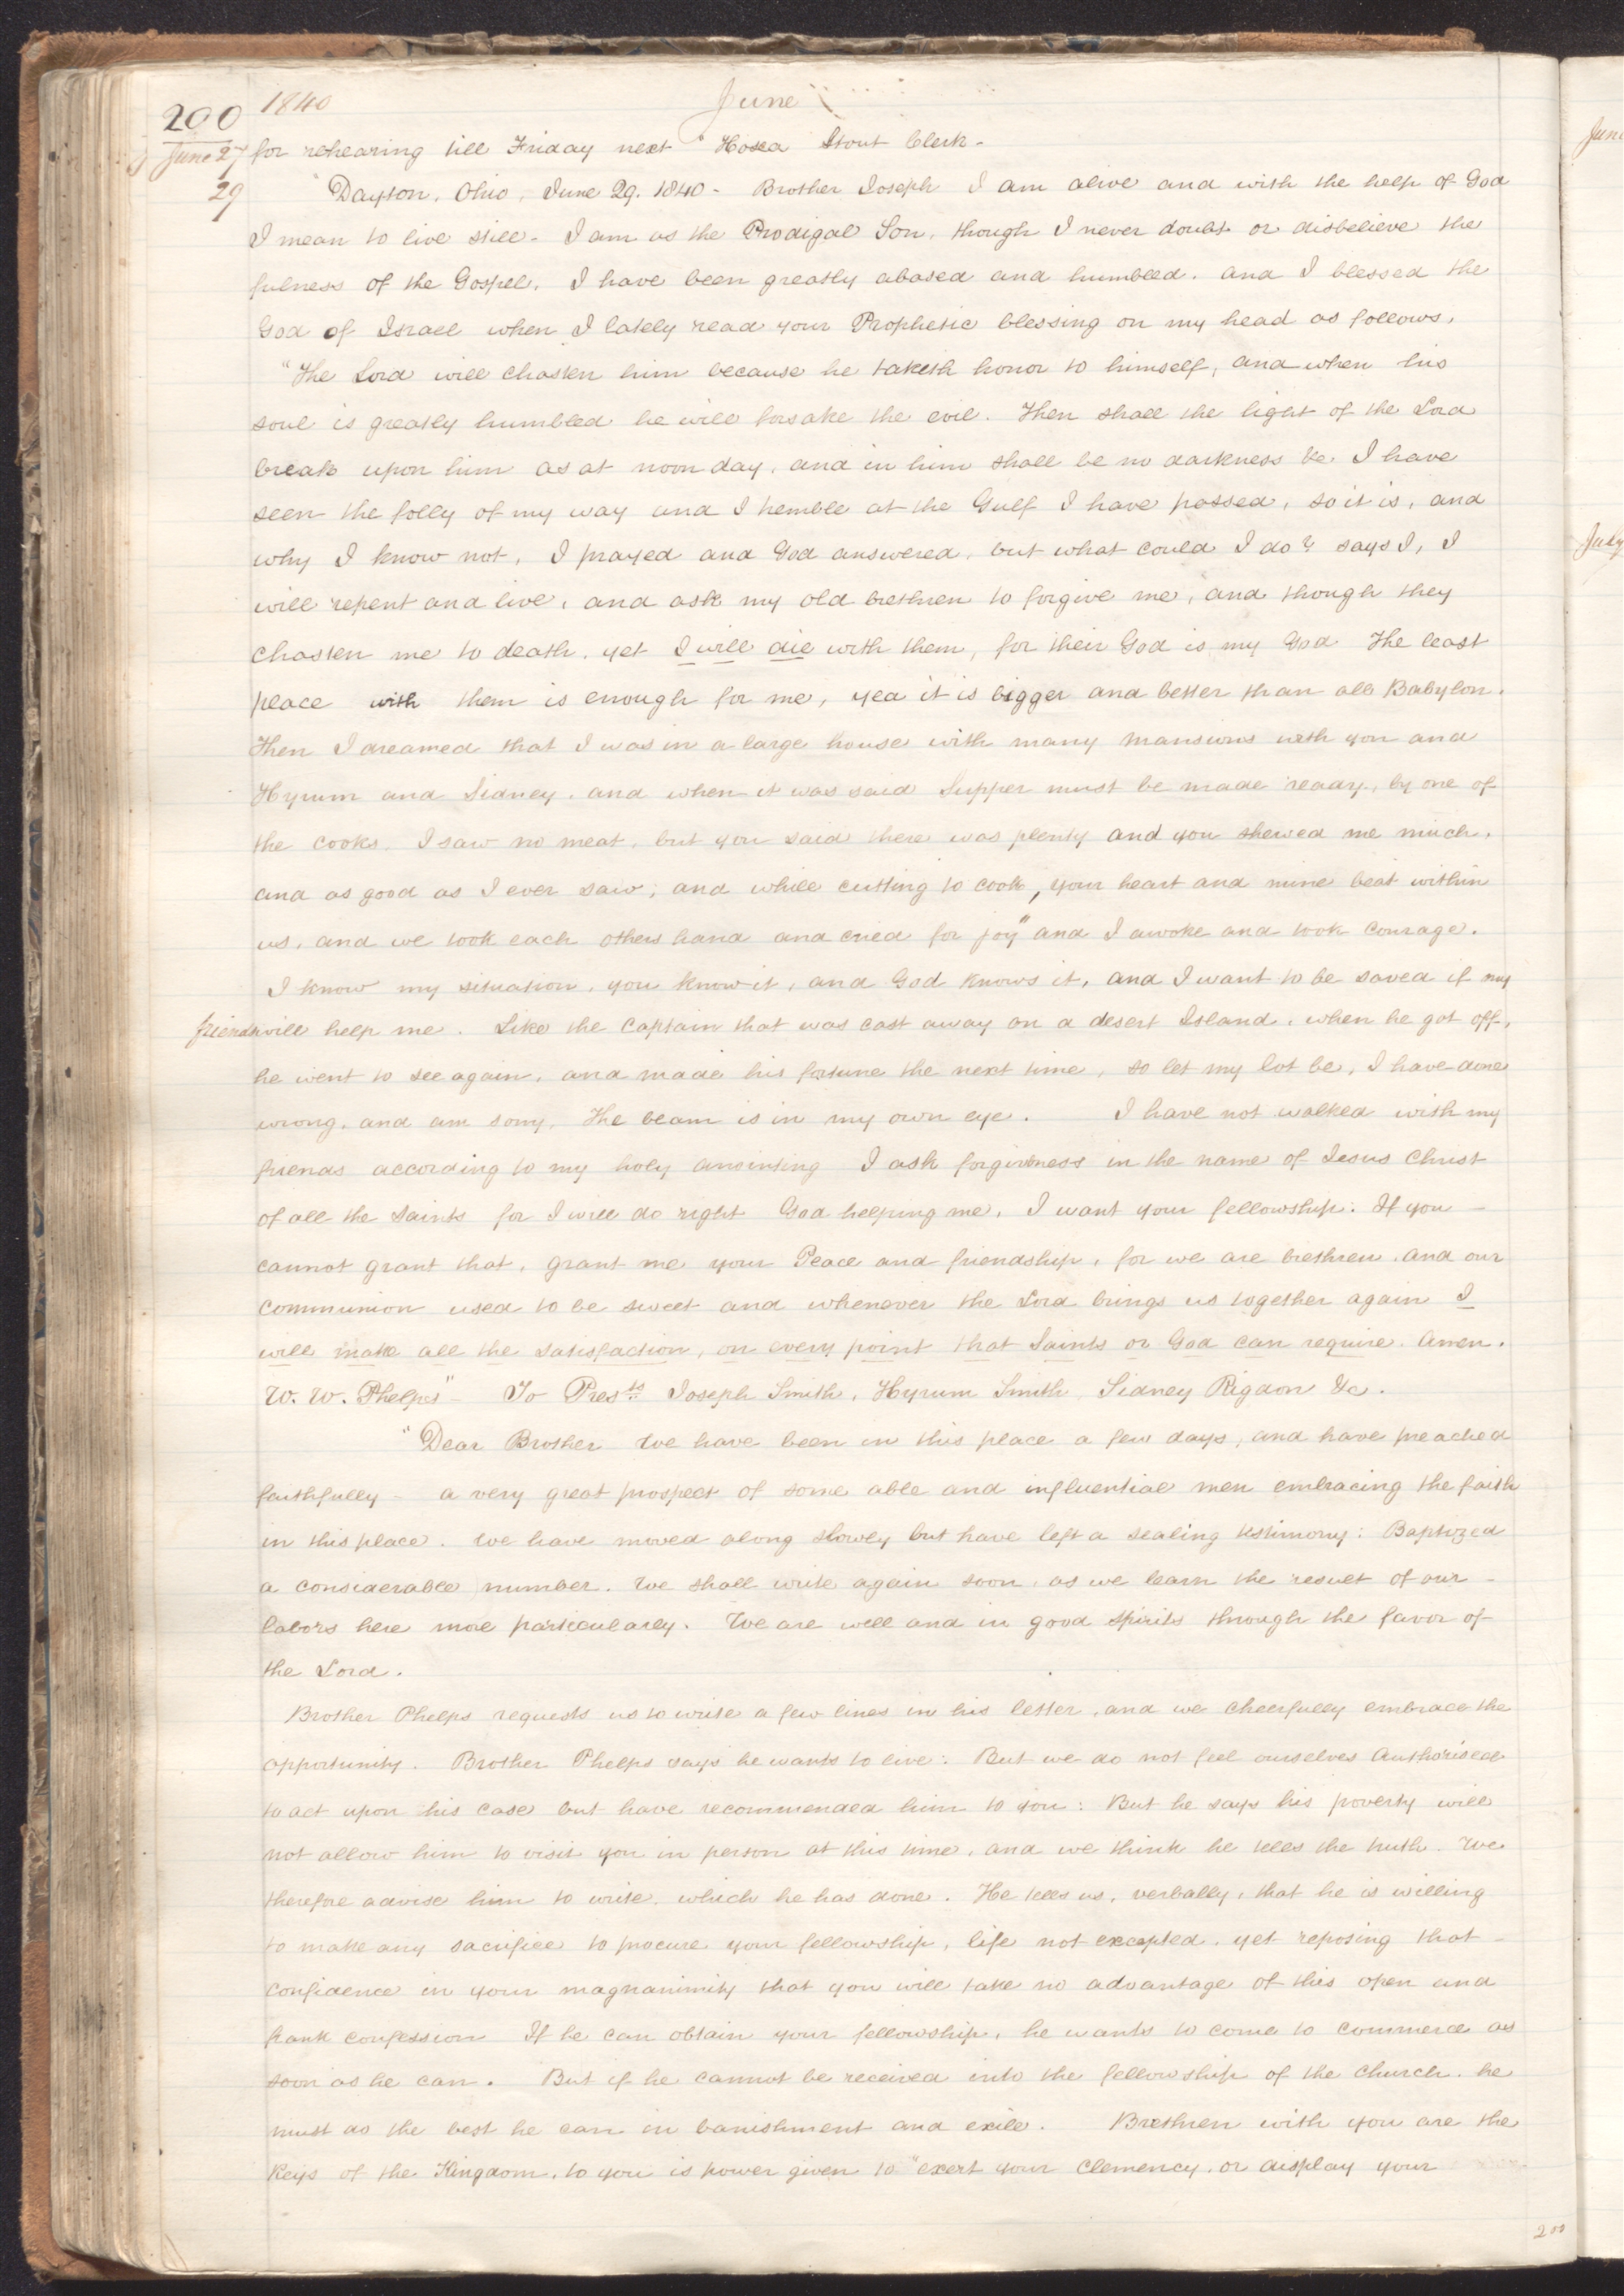 200 1840 June
June 27 for rehearing till Friday next" Hosea Stout Clerk-
29 "Dayton, Ohio, June 29. 1840- Brother Joseph I am alive and with the help of God
I mean to live still- I am as the Prodigal Son, though I never doubt or disbelieve the
fulness of the Gospel. I have been greatly abased and humbled. and I blessed the
God of Israel when I lately read your Prophetic blessing on my head as follows,
"The Lord will chasten him because he taketh honor to himself, and when his
soul is greatly humbled he will forsake the evil. Then shall the light of the Lord
break upon him as at noon day, and in him shall be no darkness &c. I have
seen the folly of my way and I tremble at the Gulf I have passed, so it is, and
why I know not, I prayed and God answered, but what could I do? says I, I
will repent and live, and ask my old brethren to forgive me, and though they
chasten me to death, yet I will die with them, for their God is my God The least
place with them is enough for me, yea it is bigger and better than all Babylon.
Then I dreamed that I was in a large house with many Mansions with you and
Hyrum and Sidney, and when it was said Supper must be made ready, by one of
the cooks. I saw no meat, but you said there was plenty and you shewed me much.
and as good as I ever saw; and while cutting to cook, your heart and mine beat within
us, and we took each others hand and cried for joy" and I awoke and took courage.
I know my situation, you know it, and God knows it, and I want to be saved if my
friends will help me. Like the Captain that was cast away on a desert Island, when he got off,
he went to see again, and made his fortune the next time, so let my lot be, I have done
wrong, and am sorry, The beam is in my own eye. I have not walked with my
friends according to my holy anointing I ask forgiveness in the name of Jesus Christ
of all the Saints for I will do right God helping me. I want your fellowship: If you
cannot grant that, grant me your Peace and friendship, for we are brethren, and our
communion used to be sweet and whenever the Lord brings us together again I
will make all the satisfaction, on every point that Saints or God can require. Amen.
W. W. Phelps"- To Presᵗˢ Joseph Smith, Hyrum Smith, Sidney Rigdon &c.
"Dear Brother We have been in this place a few days, and have preached
faithfully- a very great prospect of some able and influential men embracing the faith
in this place. We have moved along slowly but have left a sealing testimony: Baptized
a considerable number. We shall write again soon, as we learn the result of our-
labors here more particularly. We are well and in good spirits through the favor of
the Lord.
Brother Phelps requests us to write a few lines in his letter, and we cheerfully embrace the
opportunity. Brother Phelps says he wants to live: But we do not feel ourselves Authorised
to act upon his case but have recommended him to you: But he says his poverty will
not allow him to visit you in person at this time, and we think he tells the truth. We
therefore advise him to write, which he has done. He tells us, verbally, that he is willing
to make any sacrifice to procure your fellowship, life not excepted, yet reposing that-
confidence in your magnanimity that you will take no advantage of this open and
frank confession If he can obtain your fellowship, he wants to come to commerce as
soon as he can. But if he cannot be received into the fellowship of the church, he
must do the best he can in banishment and exile. Brethren with you are the
Keys of the Kingdom, to you is power given to "exert your clemency, or display your
200
June
July